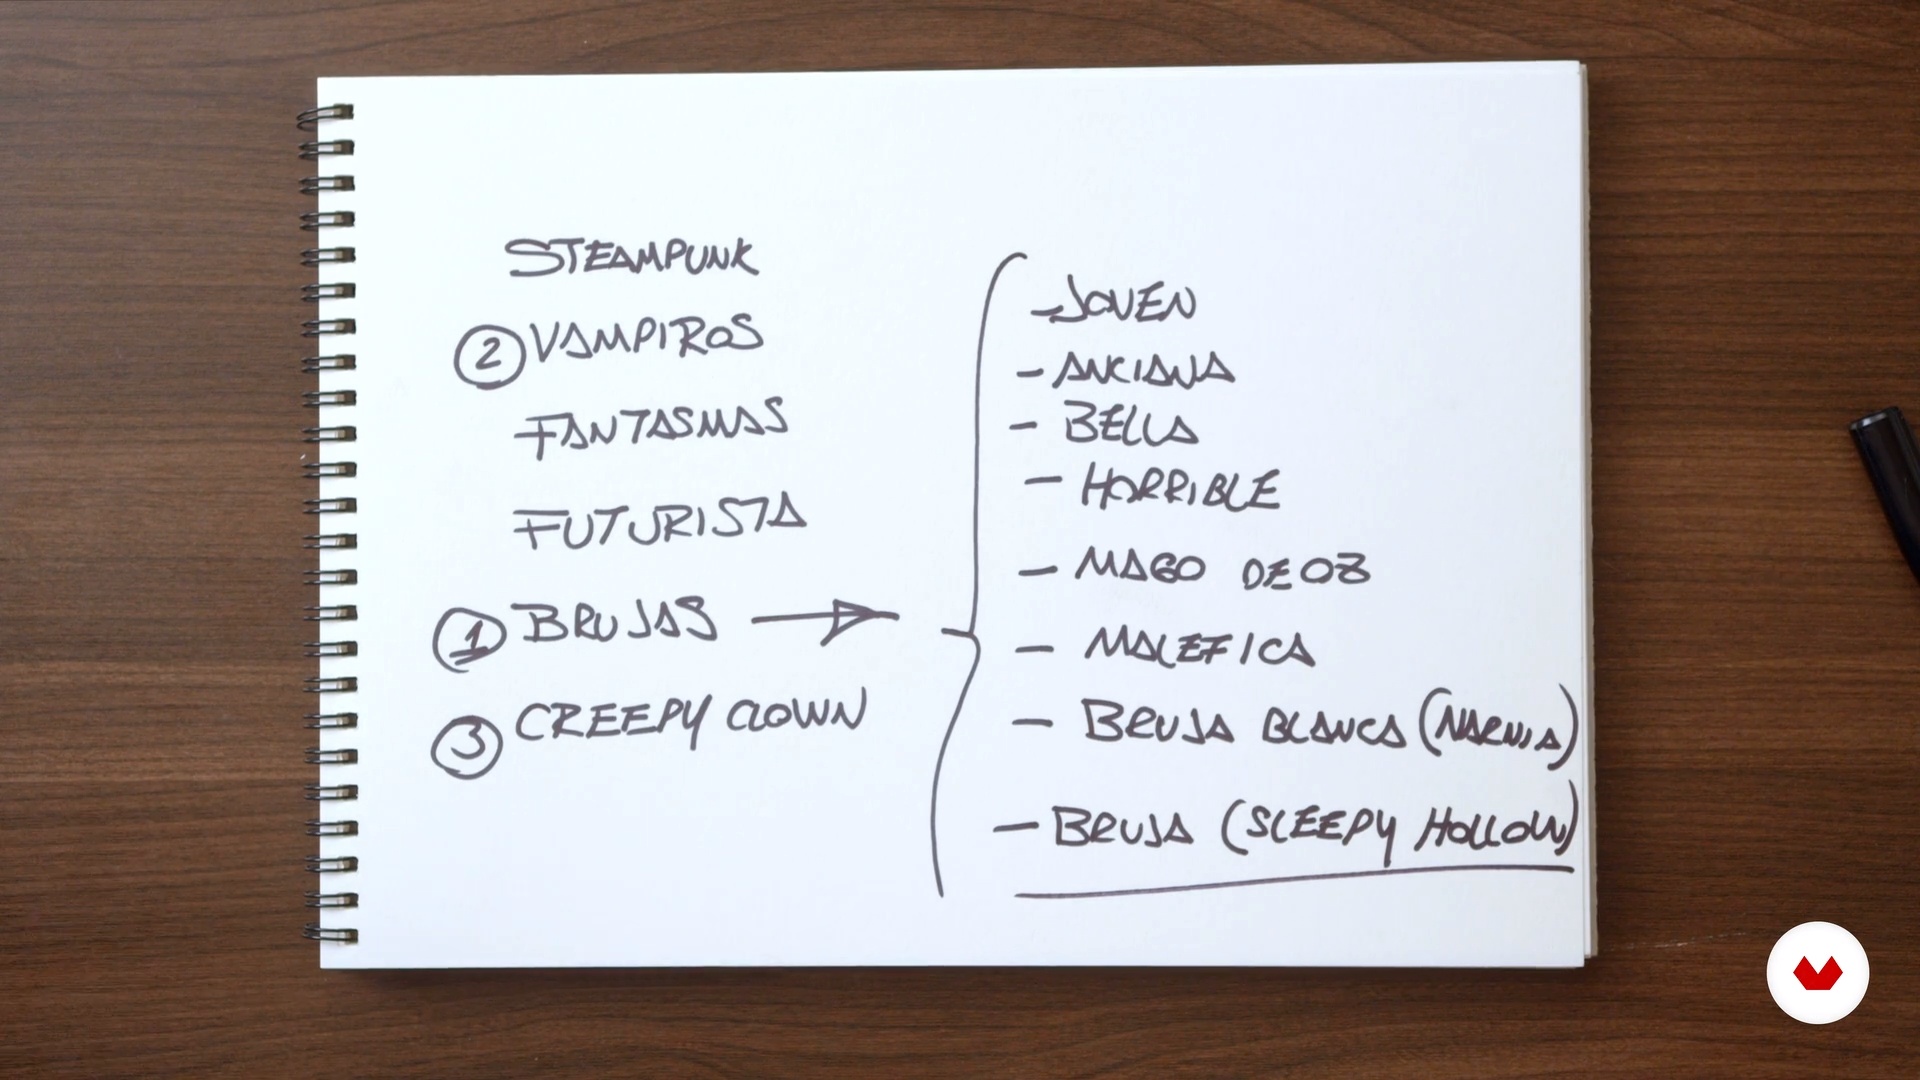 STEAMPUNK
② VAMPIROS
FANTASMAS
FUTURISTA
① BRUJAS →
③ CREEPY CLOWN
- JOVEN
- ANCIANA
- BELLA
- HORRIBLE
- MAGO DE OZ
- MALEFICA
- BRUJA BLANCA (NARNIA)
- BRUJA (SLEEPY HOLLOW)